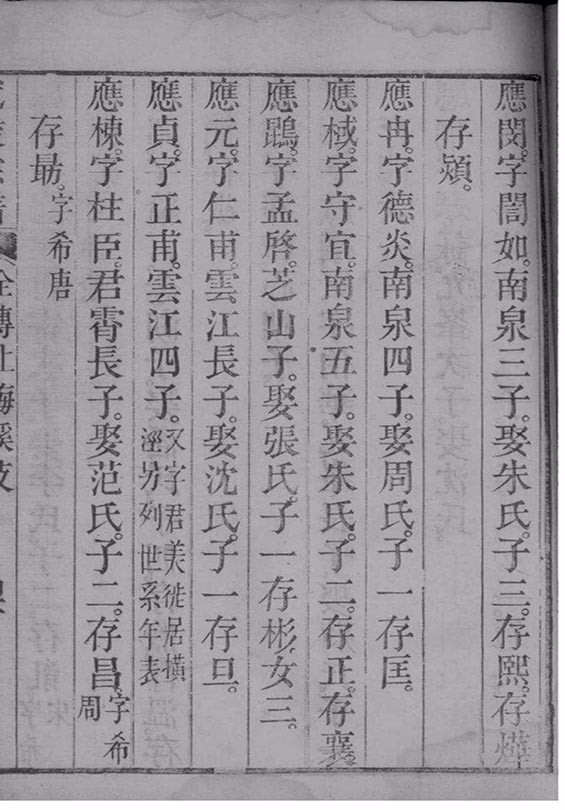 應閔。字誾如。南泉三子。娶朱氏。子三。存熙。存燁
存潁。
應冉。字德炎。南泉四子。娶周氏。子一存匡。
應棫。字守宜。南泉五子。娶朱氏。子二。存正。存襄。
應鵾。字孟啓。芝山子。娶張氏。子一存彬。女三。
應元。字仁甫。雲江長子。娶沈氏。子一存旦。
應貞。字正甫。雲江四子。又字君美徙居橫
涇另列世系年表
應棟。字柱臣。君霄長子。娶范氏。子二。存昌。字希
周
存勗。字希唐